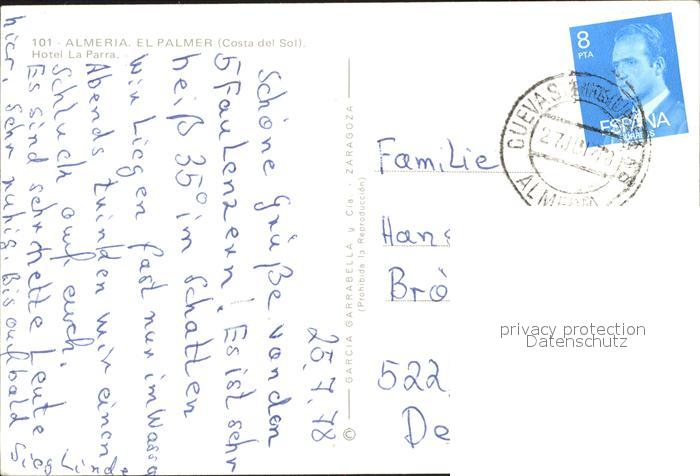 101 - ALMERIA. EL PALMER (Costa del Sol).
Hotel La Parra.
25.7.78
Schöne Grüße von den
5 Faulenzern! Es ist sehr
heiß 35° im Schatten
Wir Liegen fast nur im Wasse
Abends trinken wir einen
Schluck auf euch.
Es sind sehr nette Leute
hier. Sehr ruhig. Bis auf bald
© GARCIA GARRABELLA y Cia. - ZARAGOZA
(Prohibida la Reproducción)
8
PTA
ESPAÑA
CORREOS
CUEVAS
ALMERIA
Familie
Hans
Brö
522
De
privacy protection
Datenschutz